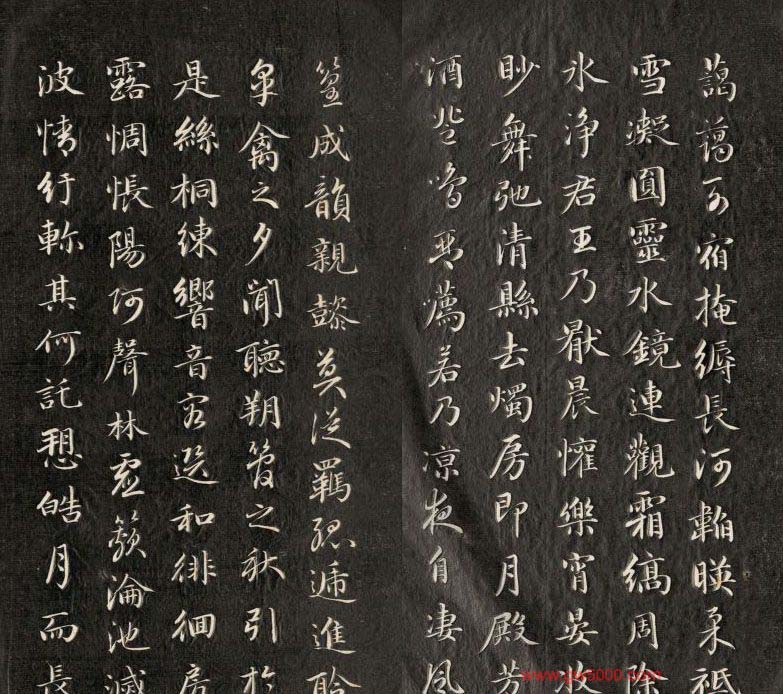 藹藹列宿掩縟長河韜暎柔祇
雪凝圓靈水鏡連觀霜縞周除
氷淨君王乃厭晨懽樂宵晏收
眇舞弛清縣去燭房即月殿芳
酒登鳴琴薦若乃凉夜自凄風
篁成韻親懿莫從羈孤遞進聆
皋禽之夕聞聽朔管之秋引於
是絲桐練響音容選和徘徊房
露惆悵陽阿聲林虛籟淪池滅
波情紆軫其何託愬皓月而長